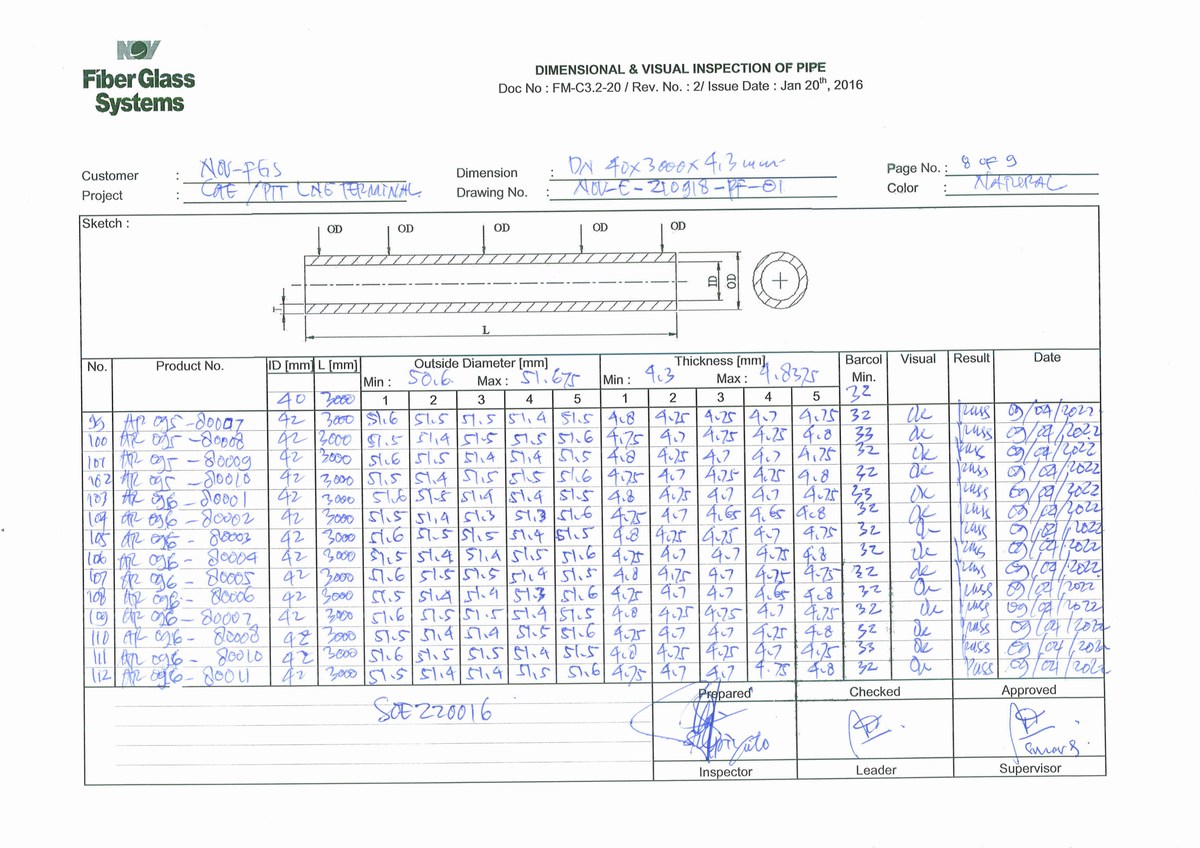 NOV
Fiber Glass
Systems
DIMENSIONAL & VISUAL INSPECTION OF PIPE
Doc No : FM-C3.2-20 / Rev. No. : 2/ Issue Date : Jan 20th, 2016
Customer : NOV-FGS Dimension : DN 40x3000x4,3 mm Page No. : 8 of 9
Project : CAE /PTT LNE TERMINAL Drawing No. : NOV-E-210918-PF-01 Color : NATURAL
Sketch :
OD OD OD OD OD
ID OD
T
L
No. Product No. ID [mm] L [mm] Outside Diameter [mm] Thickness [mm] Barcol Visual Result Date
Min : 50.6 Max : 51.675 Min : 4.3 Max : 4.8375 Min.
40 3000 1 2 3 4 5 1 2 3 4 5 32
99 AR 095-80007 42 3000 51.6 51.5 51.5 51.4 51.5 4.8 4.75 4.75 4.7 4.75 32 ok pass 09/04/2022
100 AR 095-80008 42 3000 51.5 51.4 51.5 51.5 51.6 4.75 4.7 4.75 4.75 4.8 33 ok pass 09/04/2022
101 AR 095-80009 42 3000 51.6 51.5 51.4 51.4 51.5 4.8 4.75 4.7 4.7 4.75 32 ok pass 09/04/2022
102 AR 095-80010 42 3000 51.5 51.4 51.5 51.5 51.6 4.75 4.7 4.75 4.75 4.8 32 ok pass 09/04/2022
103 AR 096-80001 42 3000 51.6 51.5 51.4 51.4 51.5 4.8 4.75 4.7 4.7 4.75 33 ok pass 09/04/2022
104 AR 096-80002 42 3000 51.5 51.4 51.3 51.3 51.6 4.75 4.7 4.65 4.65 4.8 32 ok pass 09/04/2022
105 AR 096-80003 42 3000 51.6 51.5 51.5 51.4 51.5 4.8 4.75 4.75 4.7 4.75 32 ok pass 09/04/2022
106 AR 096-80004 42 3000 51.5 51.4 51.4 51.5 51.6 4.75 4.7 4.7 4.75 4.8 32 ok pass 09/04/2022
107 AR 096-80005 42 3000 51.6 51.5 51.5 51.4 51.5 4.8 4.75 4.7 4.75 4.75 32 ok pass 09/04/2022
108 AR 096-80006 42 3000 51.5 51.4 51.4 51.3 51.6 4.75 4.7 4.7 4.65 4.8 32 ok pass 09/04/2022
109 AR 096-80007 42 3000 51.6 51.5 51.5 51.4 51.5 4.8 4.75 4.75 4.7 4.75 32 ok pass 09/04/2022
110 AR 096-80008 42 3000 51.5 51.4 51.4 51.5 51.6 4.75 4.7 4.7 4.75 4.8 32 ok pass 09/04/2022
111 AR 096-80010 42 3000 51.6 51.5 51.5 51.4 51.5 4.8 4.75 4.75 4.7 4.75 33 ok pass 09/04/2022
112 AR 096-80011 42 3000 51.5 51.4 51.4 51.5 51.6 4.75 4.7 4.7 4.75 4.8 32 ok pass 09/04/2022
SOE220016
Prepared Checked Approved
Inspector Leader Supervisor